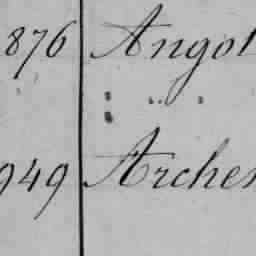 876 Angot
949 Archer